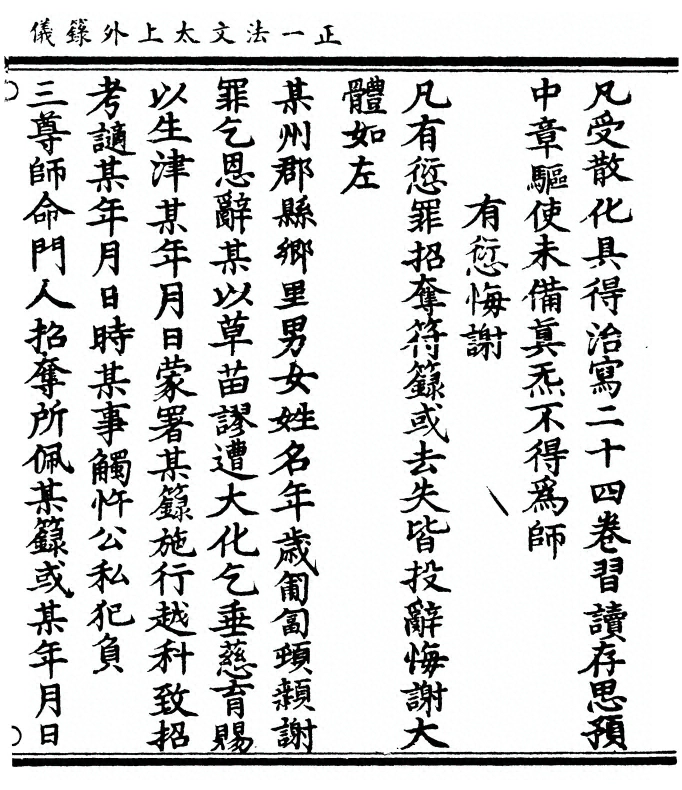 正一法文太上外籙儀
凡受散化具得治寫二十四卷習讀存思預
中章驅使未備真炁不得為師
有愆悔謝
凡有愆罪招奪符籙或去失皆投辭悔謝大
體如左
某州郡縣鄉里男女姓名年歲匍匐頓顙謝
罪乞恩辭某以草苗謬遭大化乞垂慈育賜
以生津某年月日蒙署某籙施行越科致招
考讁某年月日時某事觸忤公私犯負
三尊師命門人招奪所佩某籙或某年月日